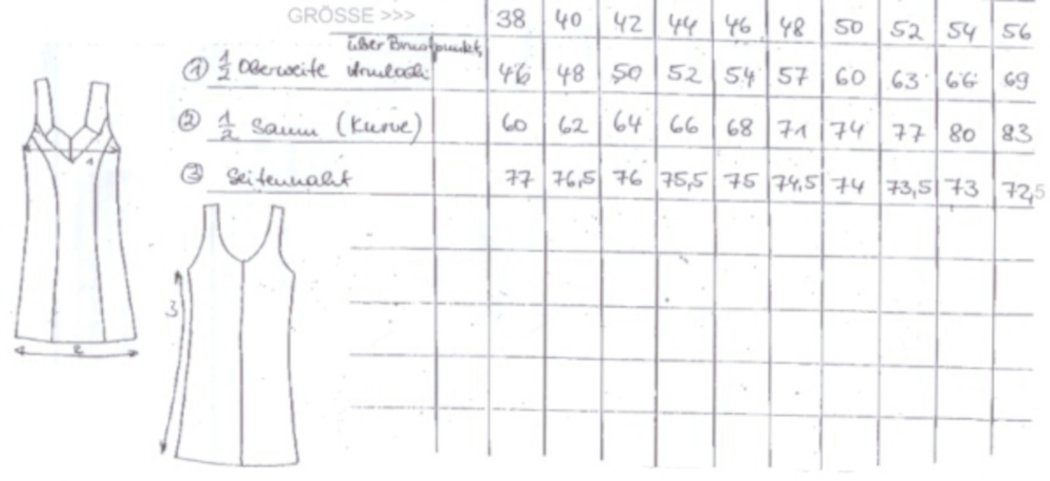 GRÖSSE >>> 38 40 42 44 46 48 50 52 54 56
über Brustpunkt,
① 1/2 Oberweite Armloch: 46 48 50 52 54 57 60 63 66 69
② 1/2 Saum (Kurve) 60 62 64 66 68 71 74 77 80 83
③ Seitennaht 77 76,5 76 75,5 75 74,5 74 73,5 73 72,5
1
2
3